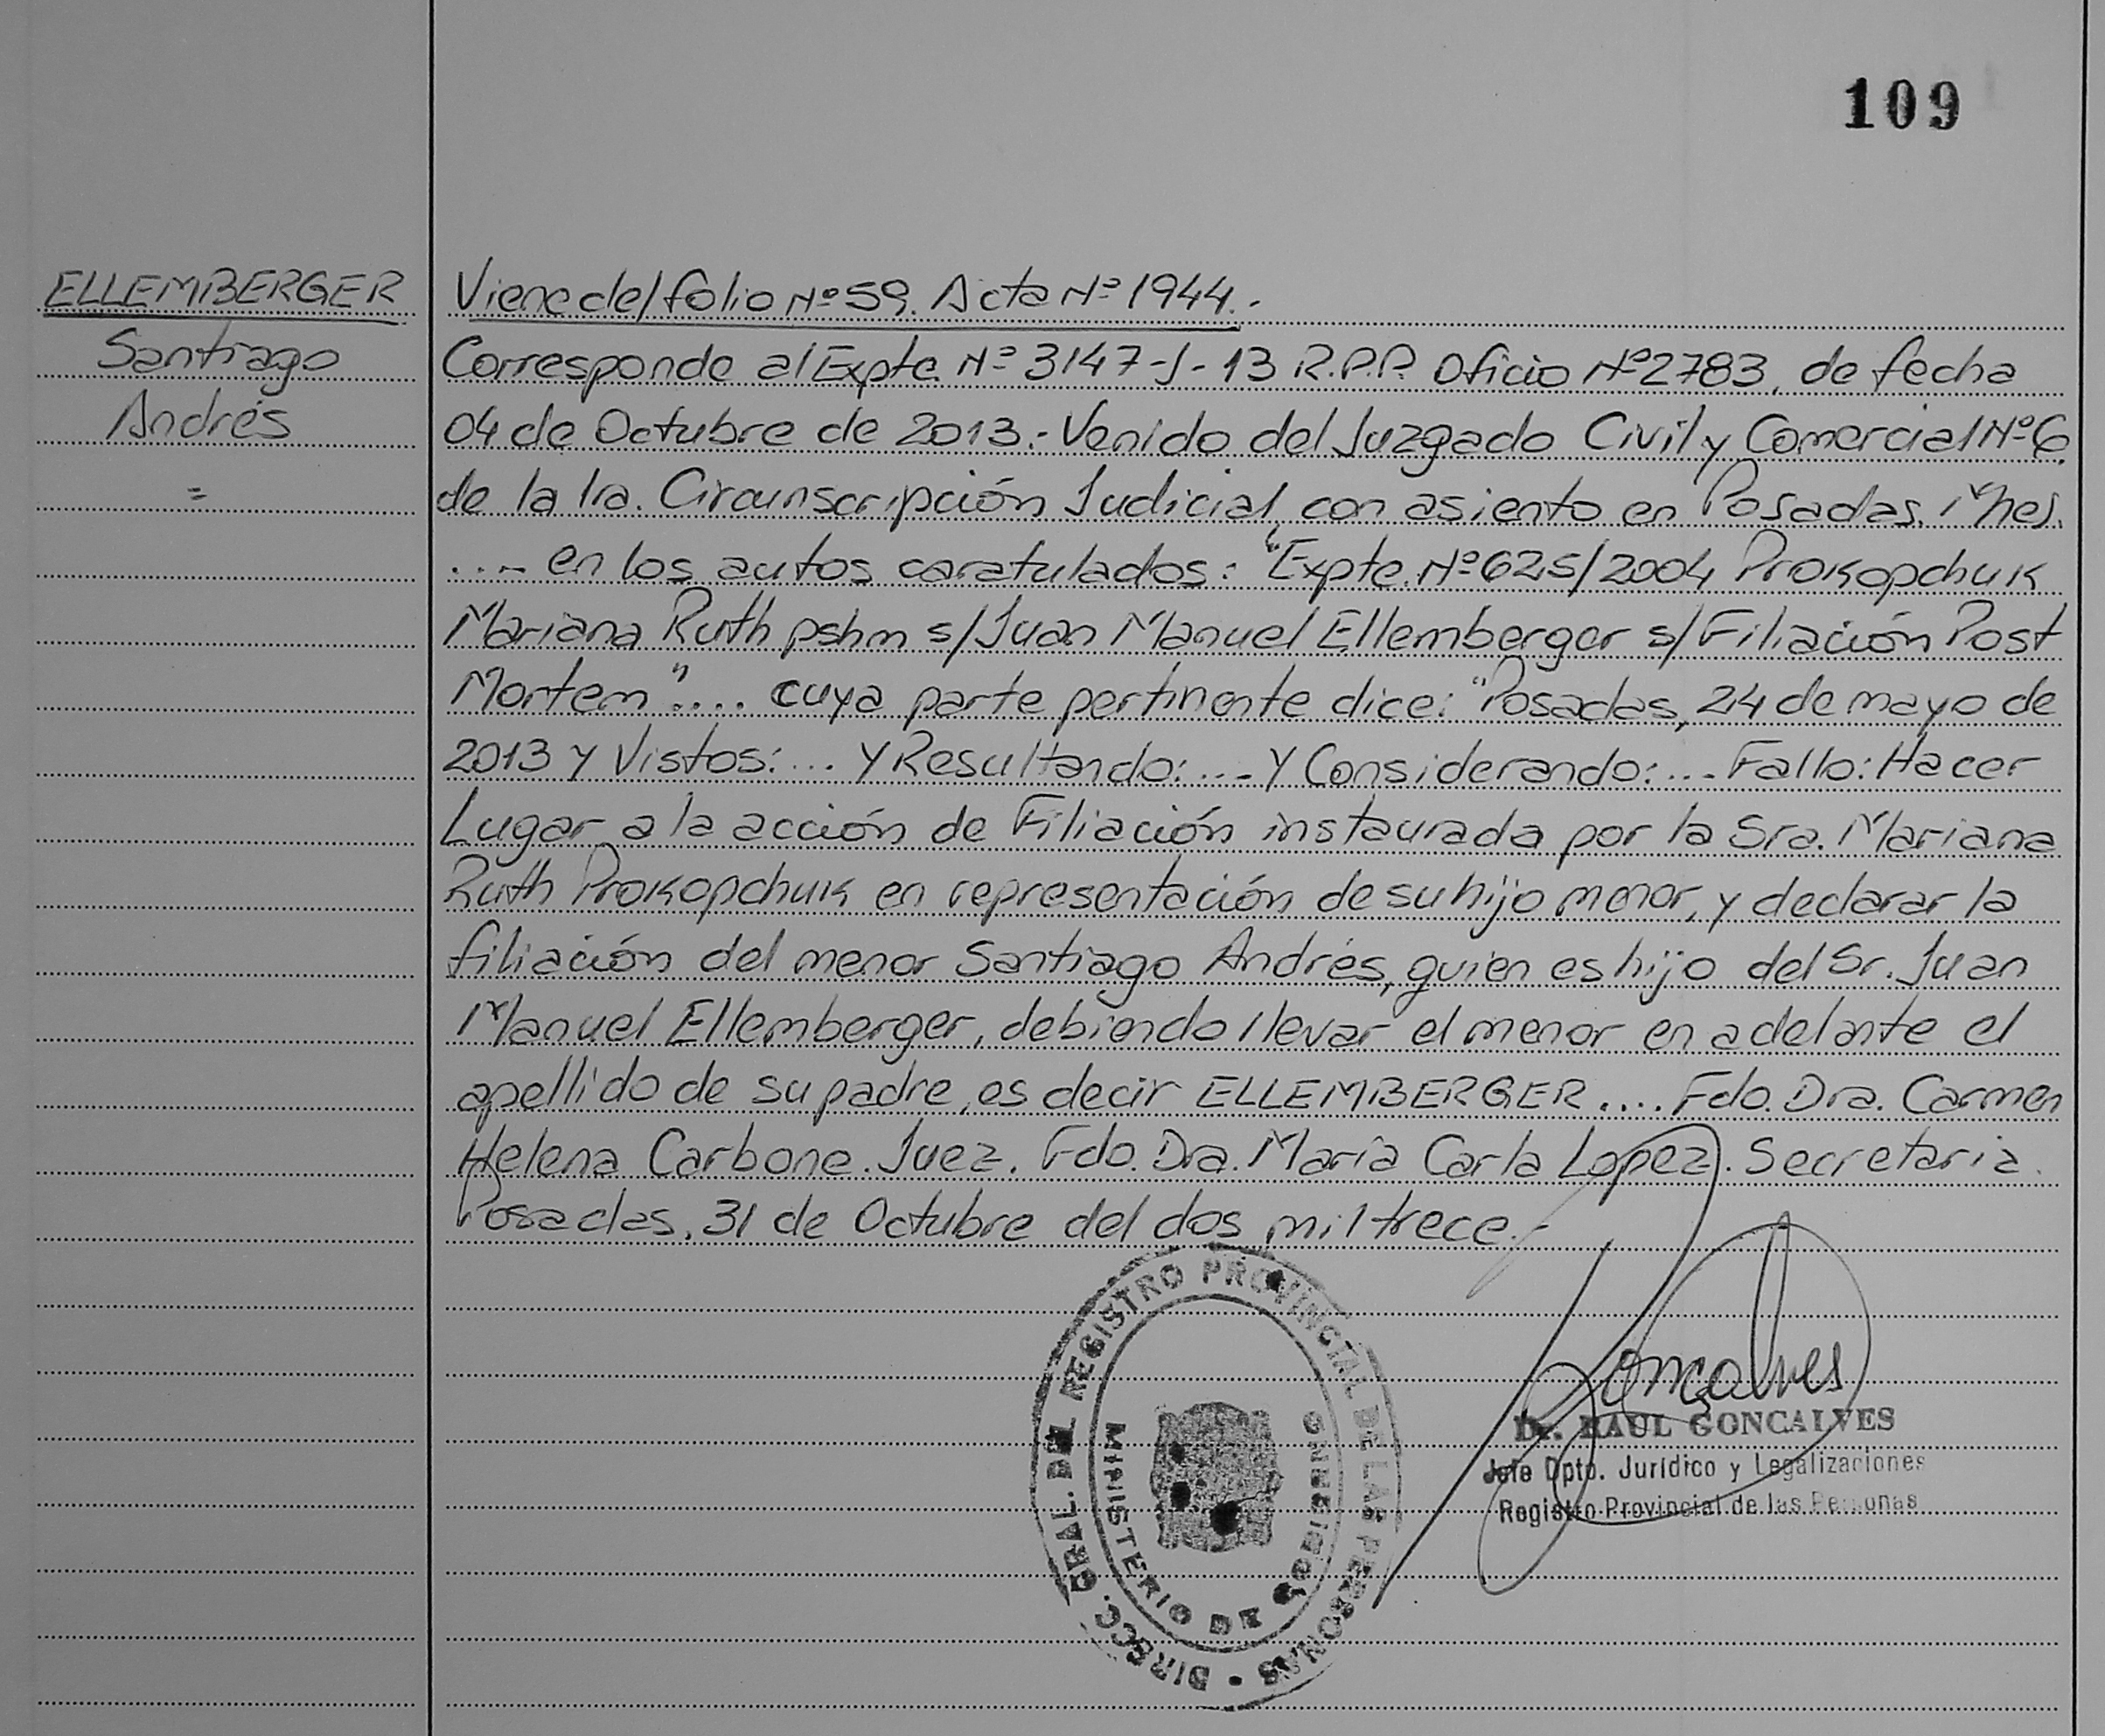 109
ELLEMBERGER
Santiago
Andrés
=
Viene del folio Nº 59. Acta Nº 1944.-
Corresponde al Expte. Nº 3147-J-13 R.P.P. Oficio Nº 2783, de fecha
04 de Octubre de 2013.- Venido del Juzgado Civil y Comercial Nº 6
de la 1ra. Circunscripción Judicial, con asiento en Posadas, Mnes.
.... en los autos caratulados: "Expte. Nº 625/2004 Prokopchuk
Mariana Ruth pshm s/Juan Manuel Ellemberger s/Filiación Post
Mortem".... cuya parte pertinente dice: "Posadas, 24 de mayo de
2013 y Vistos: ... Y Resultando: .... Y Considerando: .... Fallo: Hacer
Lugar a la acción de Filiación instaurada por la Sra. Mariana
Ruth Prokopchuk en representación de su hijo menor, y declarar la
filiación del menor Santiago Andrés, quien es hijo del Sr. Juan
Manuel Ellemberger, debiendo llevar el menor en adelante el
apellido de su padre, es decir ELLEMBERGER .... Fdo. Dra. Carmen
Helena Carbone. Juez. Fdo. Dra. María Carla Lopez. Secretaria.
Posadas, 31 de Octubre del dos mil trece.-
DIRECC. GRAL. DEL REGISTRO PROVINCIAL DE LAS PERSONAS •
MINISTERIO DE GOBIERNO
Goncalves
Dr. RAUL GONCALVES
Jefe Dpto. Jurídico y Legalizaciones
Registro Provincial de las Personas